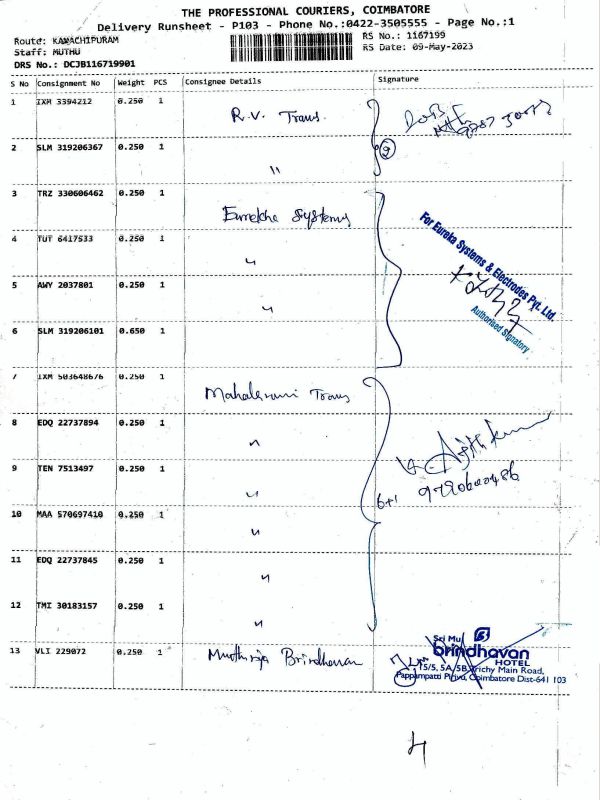 THE PROFESSIONAL COURIERS, COIMBATORE
Delivery Runsheet - P103 - Phone No.:0422-3505555 - Page No.:1
Route: KAMACHIPURAM
Staff: MUTHU
DRS No.: DCJB116719901
RS No.: 1167199
RS Date: 09-May-2023
S No Consignment No Weight PCS Consignee Details Signature
1 IXM 3394212 0.250 1 R.V. Trans.
2 SLM 319206367 0.250 1 〃
3 TRZ 330606462 0.250 1 Eureka Systems
4 TUT 6417533 0.250 1 〃
5 AWY 2037801 0.250 1 〃
6 SLM 319206101 0.650 1
For Eureka Systems & Electrodes Pvt. Ltd.
Authorised Signatory
7 IXM 503648676 0.250 1 Mahalaxmi Trans
8 EDQ 22737894 0.250 1 〃
9 TEN 7513497 0.250 1 〃
6+1
10 MAA 570697410 0.250 1 〃
11 EDQ 22737845 0.250 1 〃
12 TMI 30183157 0.250 1 〃
13 VLI 229072 0.250 1 Brindhavan
Sri Mu
brindhavan
HOTEL
15/5, 5A, 5B, Trichy Main Road,
Pappampatti Pirivu, Coimbatore Dist-641 103
4